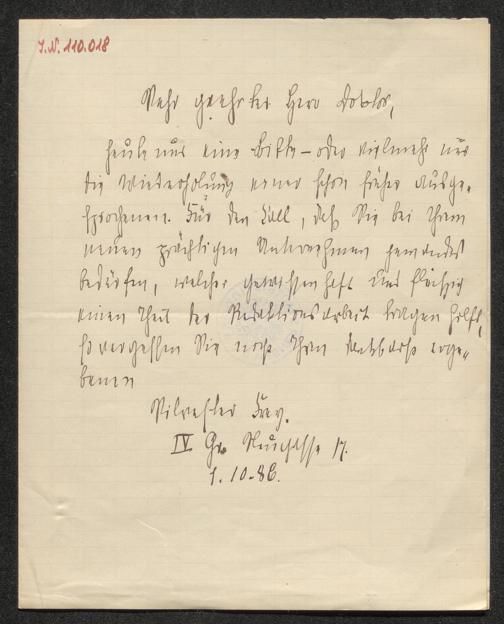 J.N. 110.018
Sehr geehrter Herr Doktor,
heute nur eine Bitte – oder vielmehr nur
die Wiederholung einer schon früher ausge-
sprochenen. Für den Fall, daß Sie bei Ihrem
neuen prächtigen Unternehmen jemandes
bedürfen, welcher gewissenhaft und fleißig
einen Theil der Redaktionsarbeit tragen hilft,
so vergessen Sie nicht Ihren dankbarst erge-
benen
Silvester Frey.
IV Gr. Neugasse 17.
1.10-86.